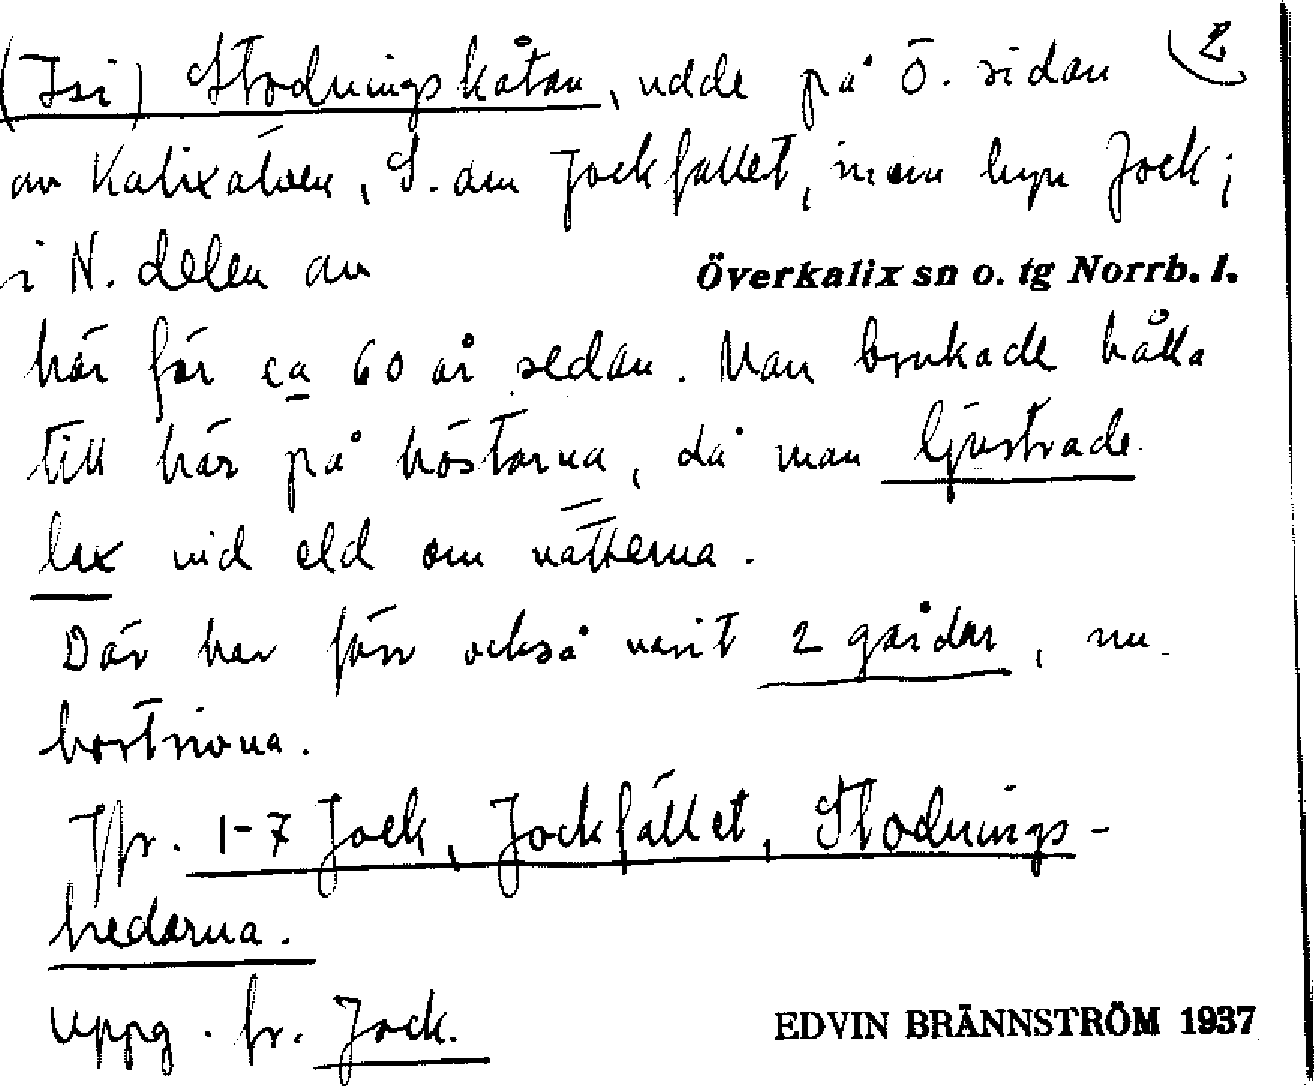 (Isi) Stodningskåtan, udde på Ö. sidan 2
av Kalixälven, S. om Jockfallet, inom byn Jock;
i N. delen av Överkalix sn o. tg Norrb. l.
här för ca 60 år sedan. Man brukade hålla
till här på höstarna, då man ljustrade
lax vid eld om nätterna.
Där har förr också varit 2 gårdar, nu
bortrivna.
Jfr. 1-7 Jock, Jockfallet, Stodnings-
hedarna.
Uppg. fr. Jock.
EDVIN BRÄNNSTRÖM 1937